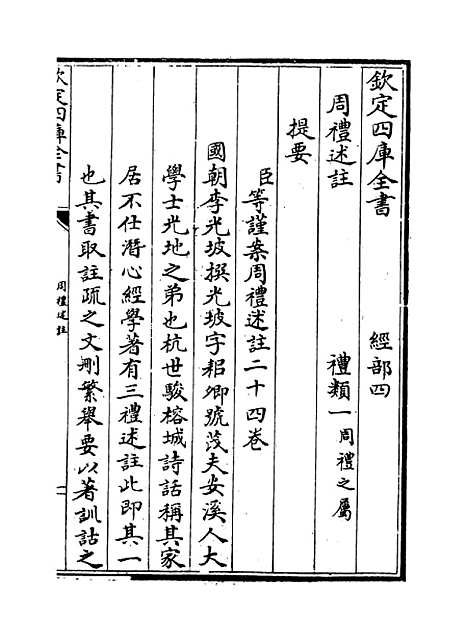 欽定四庫全書 經部四
周禮述註 禮類一周禮之屬
提要
臣等謹案周禮述註二十四卷
國朝李光坡撰光坡字耜卿號茂夫安溪人大
學士光地之弟也杭世駿榕城詩話稱其家
居不仕潛心經學著有三禮述註此即其一
也其書取註疏之文刪繁舉要以著訓詁之
欽定四庫全書
周禮述註